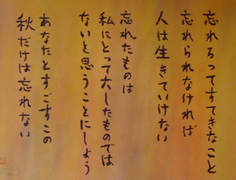 忘れるってすてきなこと
忘れられなければ
人は生きていけない
忘れたものは
私にとって大したものでは
ないと思うことにしよう
あなたとすごすこの
秋だけは忘れない